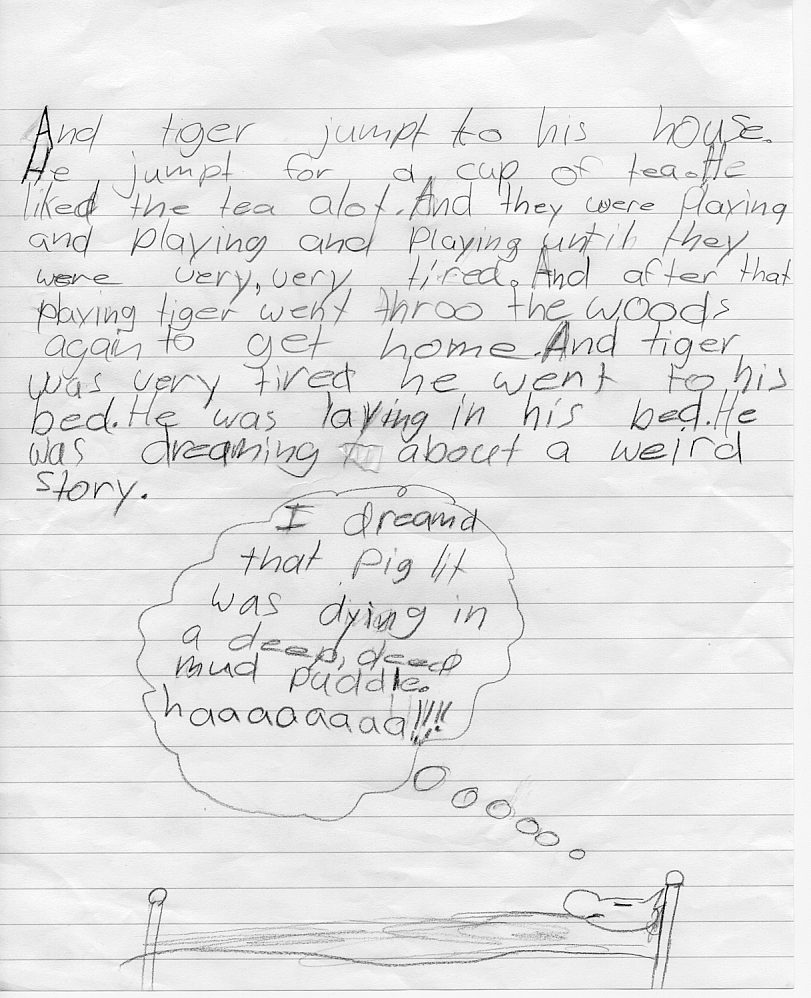 And tiger jumpt to his house.
He jumpt for a cup of tea. He
liked the tea alot. And they were playing
and playing and playing until they
were very, very tired. And after that
playing tiger went throo the woods
again to get home. And tiger
was very tired he went to his
bed. He was laying in his bed. He
was dreaming about a weird
story.
I dreamd
that Pig lit
was dying in
a deep, deep
mud puddle.
haaaaaaaa!!!!